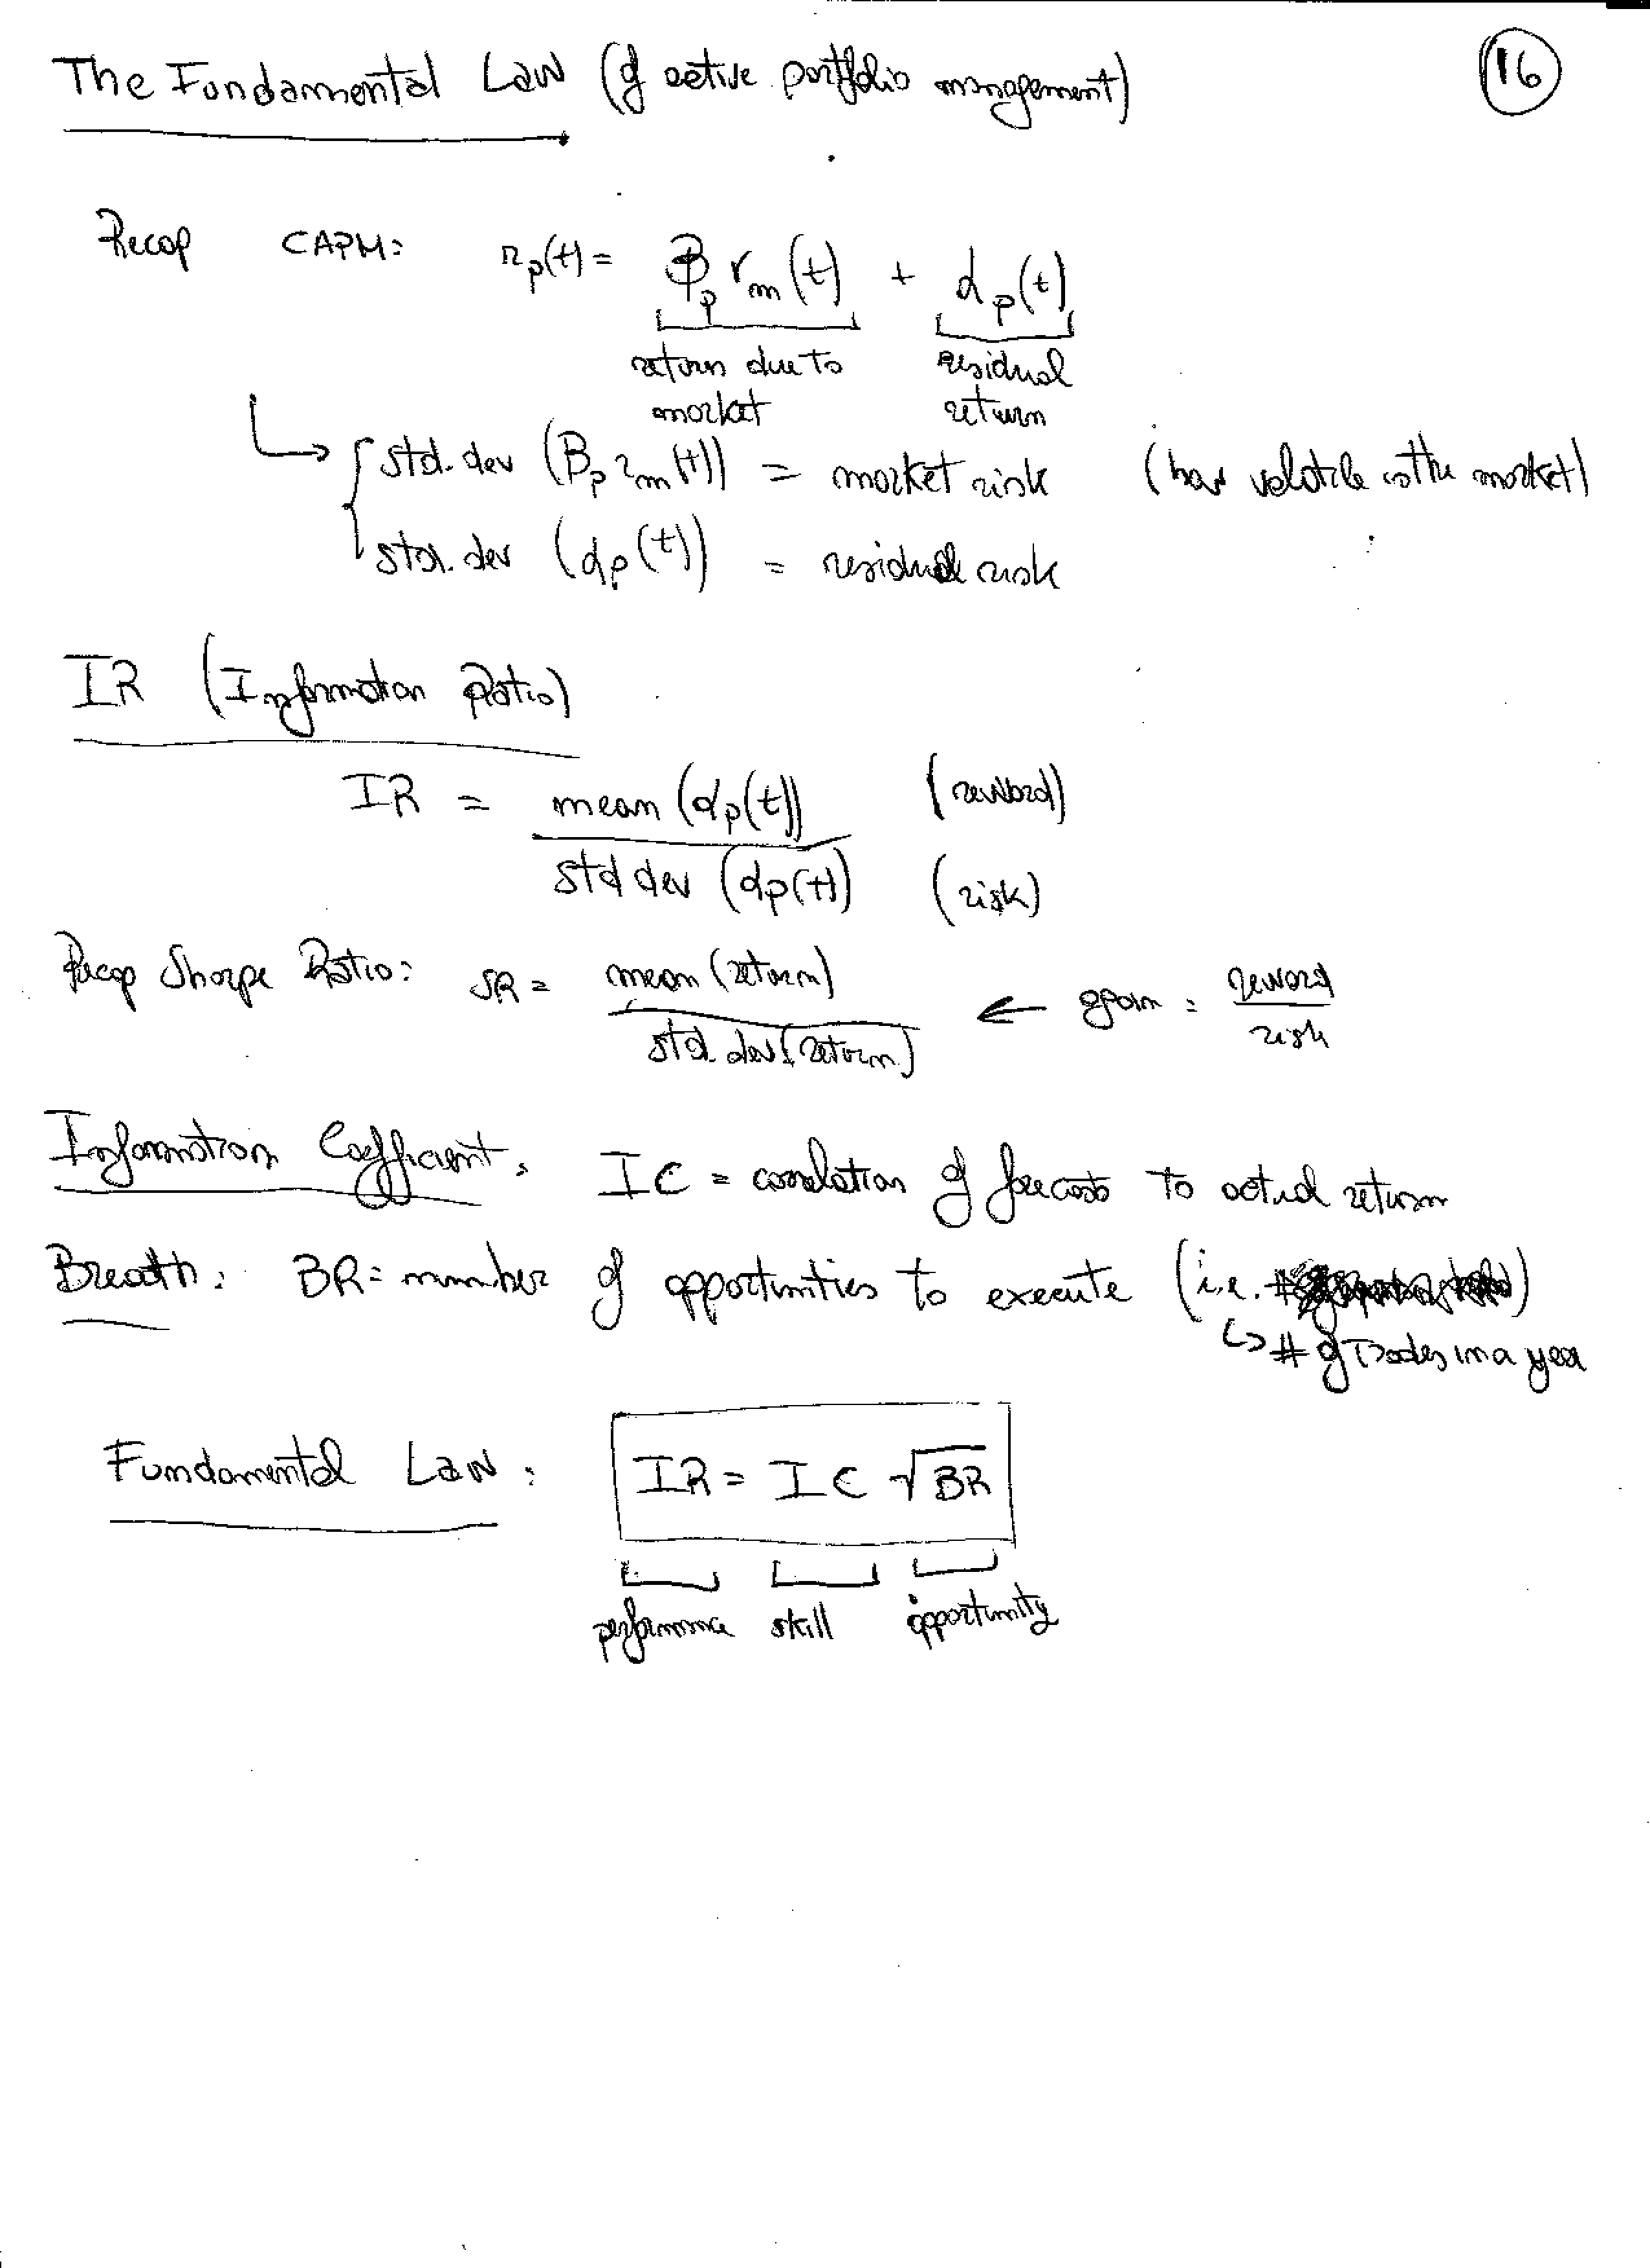 The Fundamental Law (of active portfolio management)
16
Recap CAPM: r_p(t) = β_p r_m(t) + α_p(t)
return due to market
residual return
↳ { std. dev (β_p r_m(t)) = market risk (how volatile is the market)
std. dev (α_p(t)) = residual risk
IR (Information Ratio)
IR = mean (α_p(t)) (reward)
std dev (α_p(t)) (risk)
Recap Sharpe Ratio: SR = mean (return) ← again : reward
std. dev (return) risk
Information Coefficient: IC = correlation of forecasts to actual return
Breath: BR = number of opportunities to execute (i.e. )
↳ # of Trades in a year
Fundamental Law: IR = IC √BR
performance skill opportunity